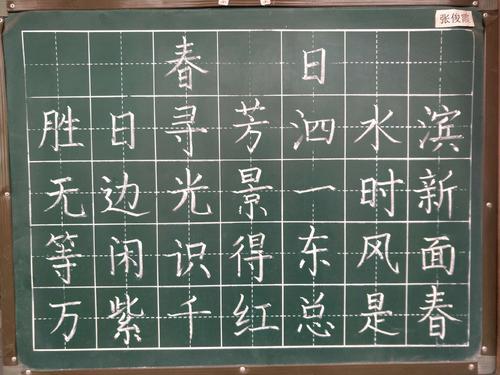 张俊霞
春日
胜日寻芳泗水滨
无边光景一时新
等闲识得东风面
万紫千红总是春